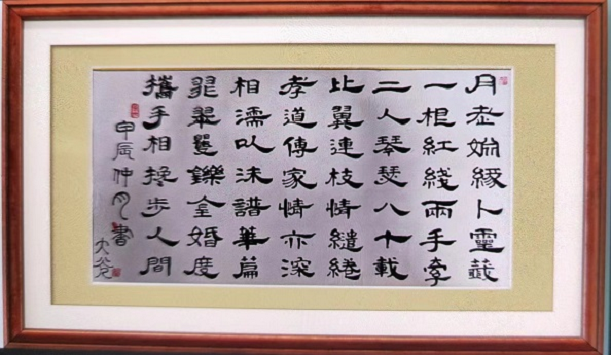 月老姻緣卜靈籤
一根紅綫兩手牽
二人琴瑟八十載
比翼連枝情繾綣
孝道傳家情亦深
相濡以沫譜華篇
翡翠矍鑠全婚度
攜手相攙步人間
甲辰仲書